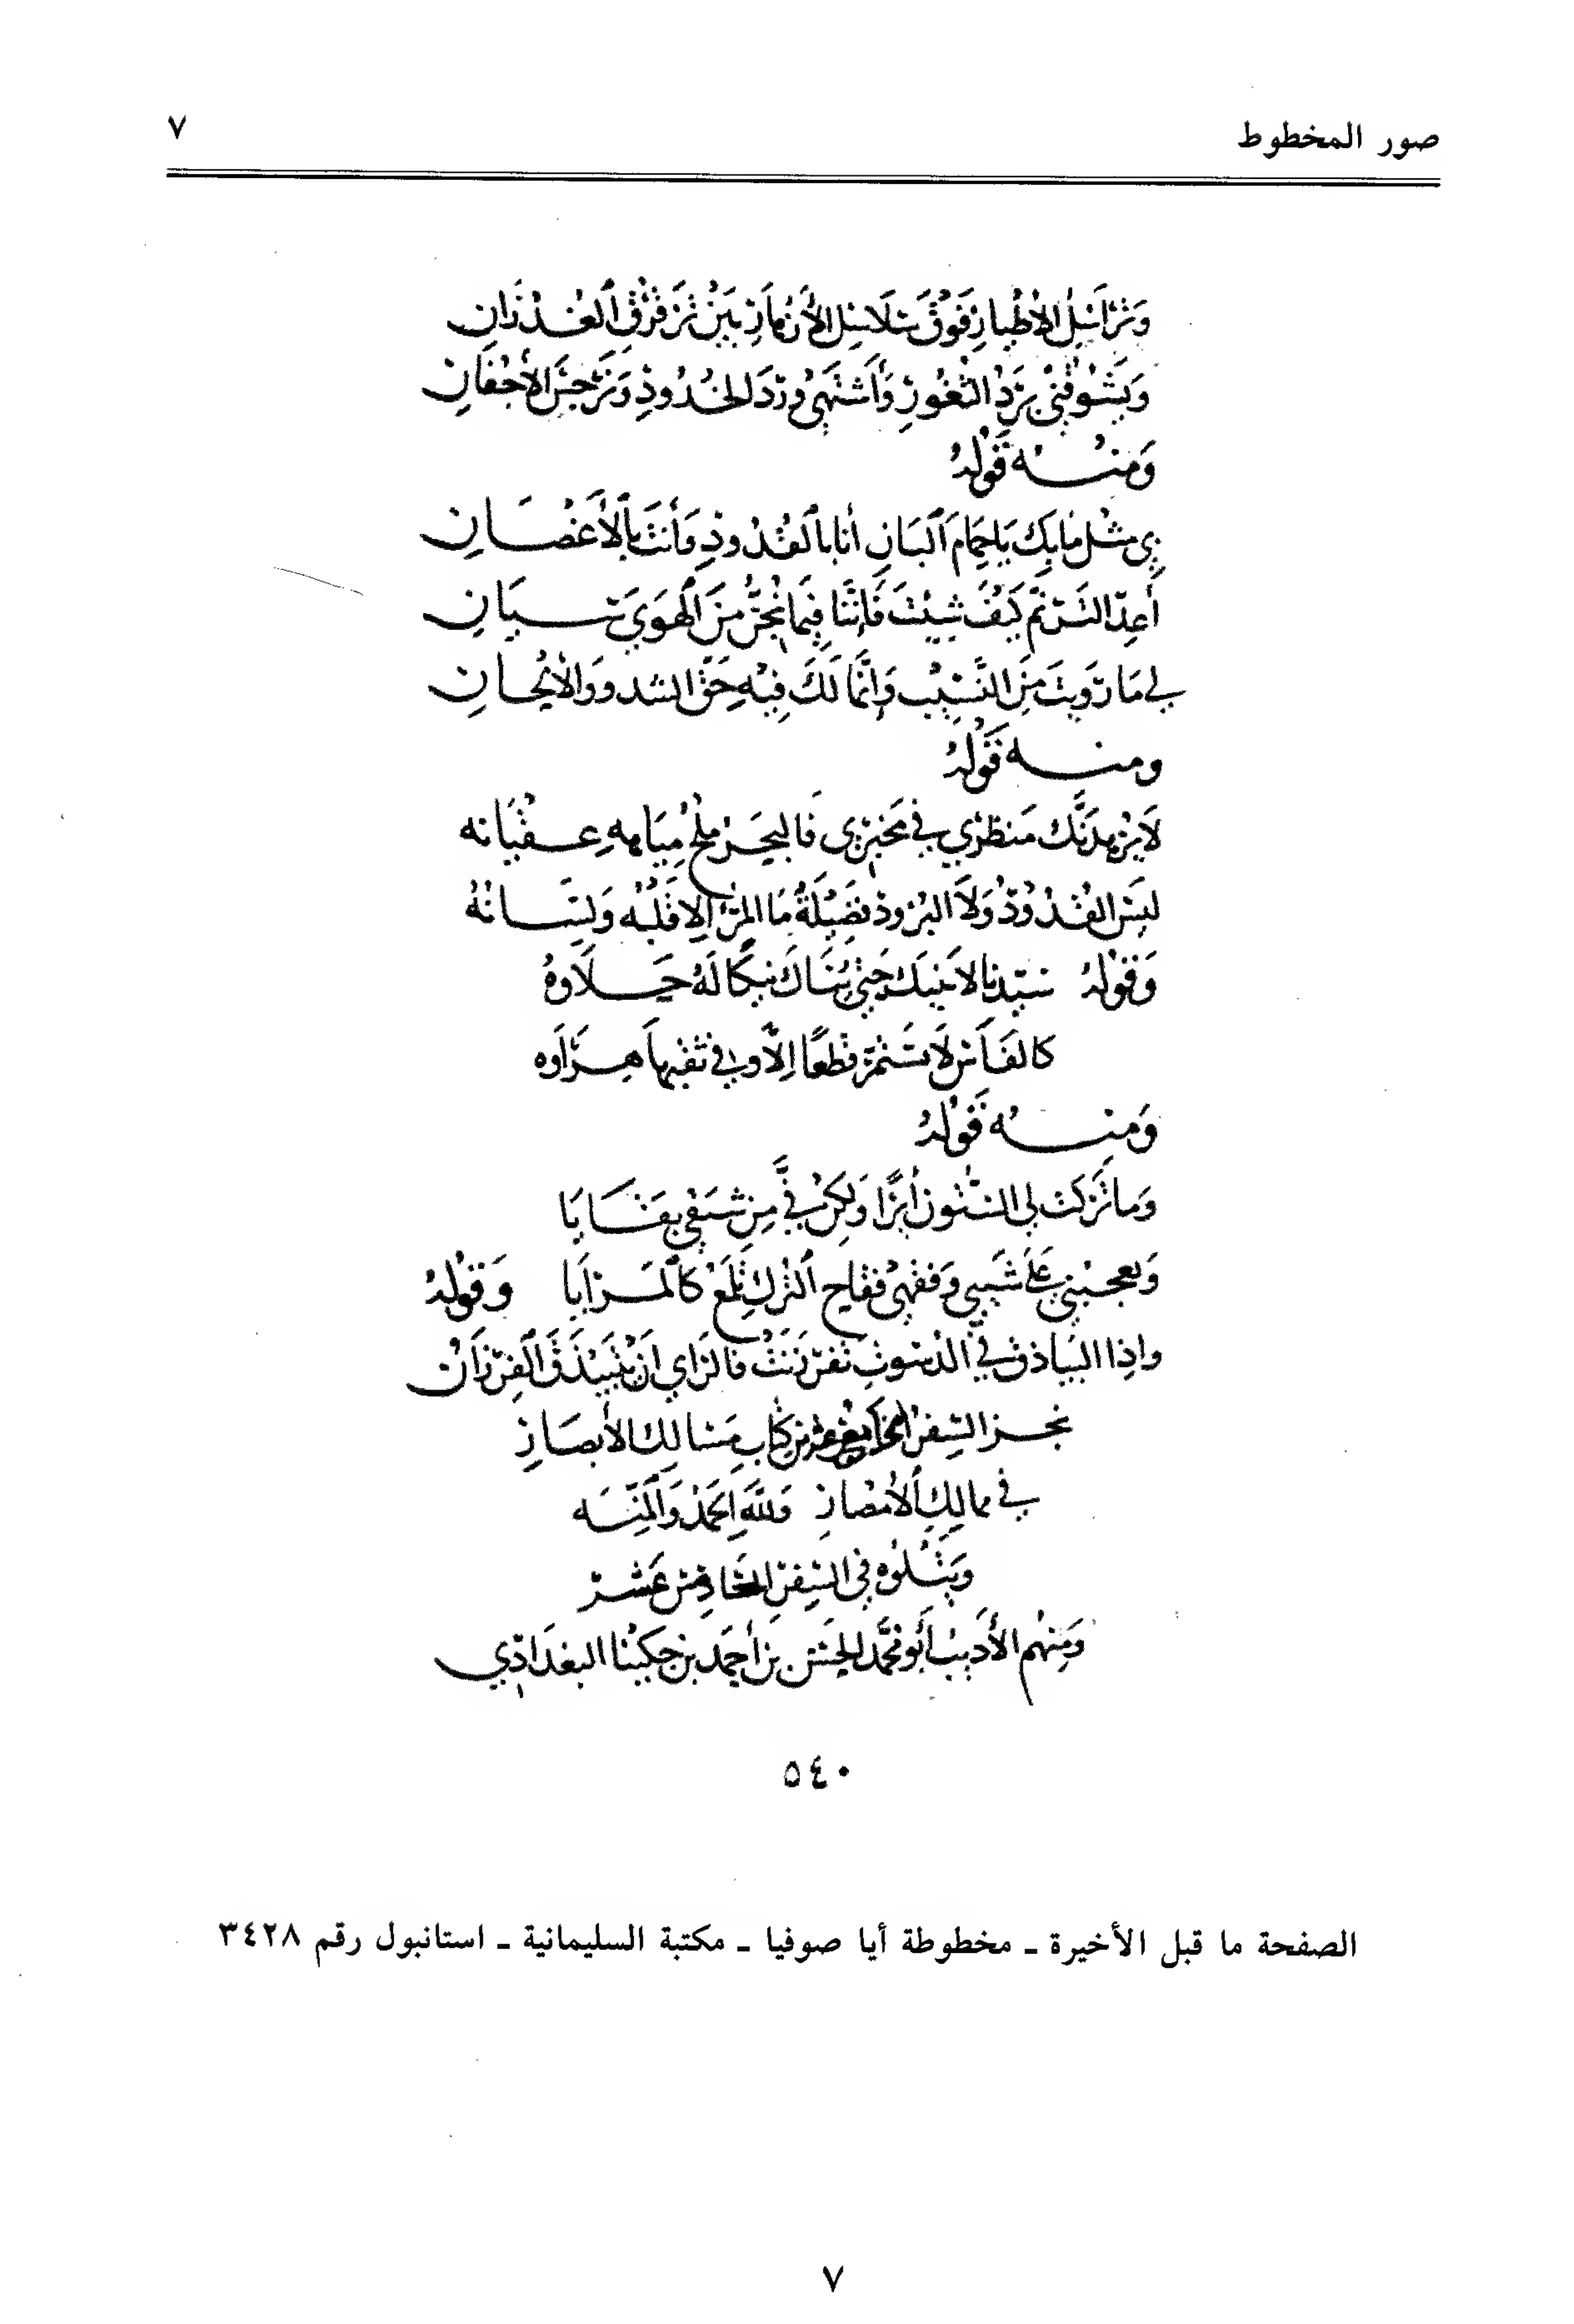 صور المخطوط
٧
وتراسل الأطيار فوق سلاسل الأنهار بين ترقرق الغدران
ويشوقني برد الثغور وأشتهي ورد الخدود ونرجس الأجفان
ومنه قوله
بي مثل ما بك يا حمام البان أنا بالقدود وأنت بالأغصان
أعد الترنم كيف شئت فإننا فيما نجن من الهوى سيان
لي ما رويت من النسيب وإنما لك فيه حق الشدو والألحان
ومنه قوله
لا يزهدنك منظري في مخبري فالبحر ملح مياهه عقيانه
ليس القدود ولا البرود فضيلة ما المرء إلا قلبه ولسانه
وقوله سيدنا لا ينيك حتى يناك نيكا له حلاوه
كالفأس لا تستمر قطعا إلا وفي ثقبها هراوه
ومنه قوله
وما تركت لي الستون أيرا ولكن في من شبقي بقايا
ويعجبني على شيبي وفقهي فقاح الترك تلمع كالمرايا وقوله
وإذا البياذق في الدسوت تفرزنت فالرأي أن يتبيذق الفرزان
نجز السفر من كتاب مسالك الأبصار
في ممالك الأمصار ولله الحمد والمنه
ويتلوه في السفر عشر
ومنهم الأديب أبو محمد الحسن بن أحمد بن جكينا البغدادي
٥٤٠
الصفحة ما قبل الأخيرة ـ مخطوطة أيا صوفيا ـ مكتبة السليمانية ـ استانبول رقم ٣٤٢٨
٧